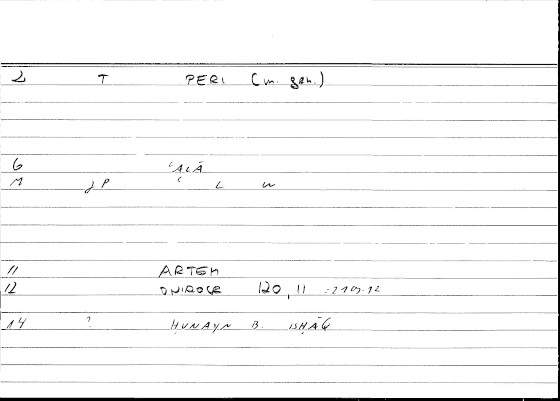 2 T PERI (m. gen.)
6 ʿALĀ
M JP ʿ L W
11 ARTEM
12 ONIROCR 120, 11 =219,12
14 ? ḤUNAYN B. ISḤĀQ